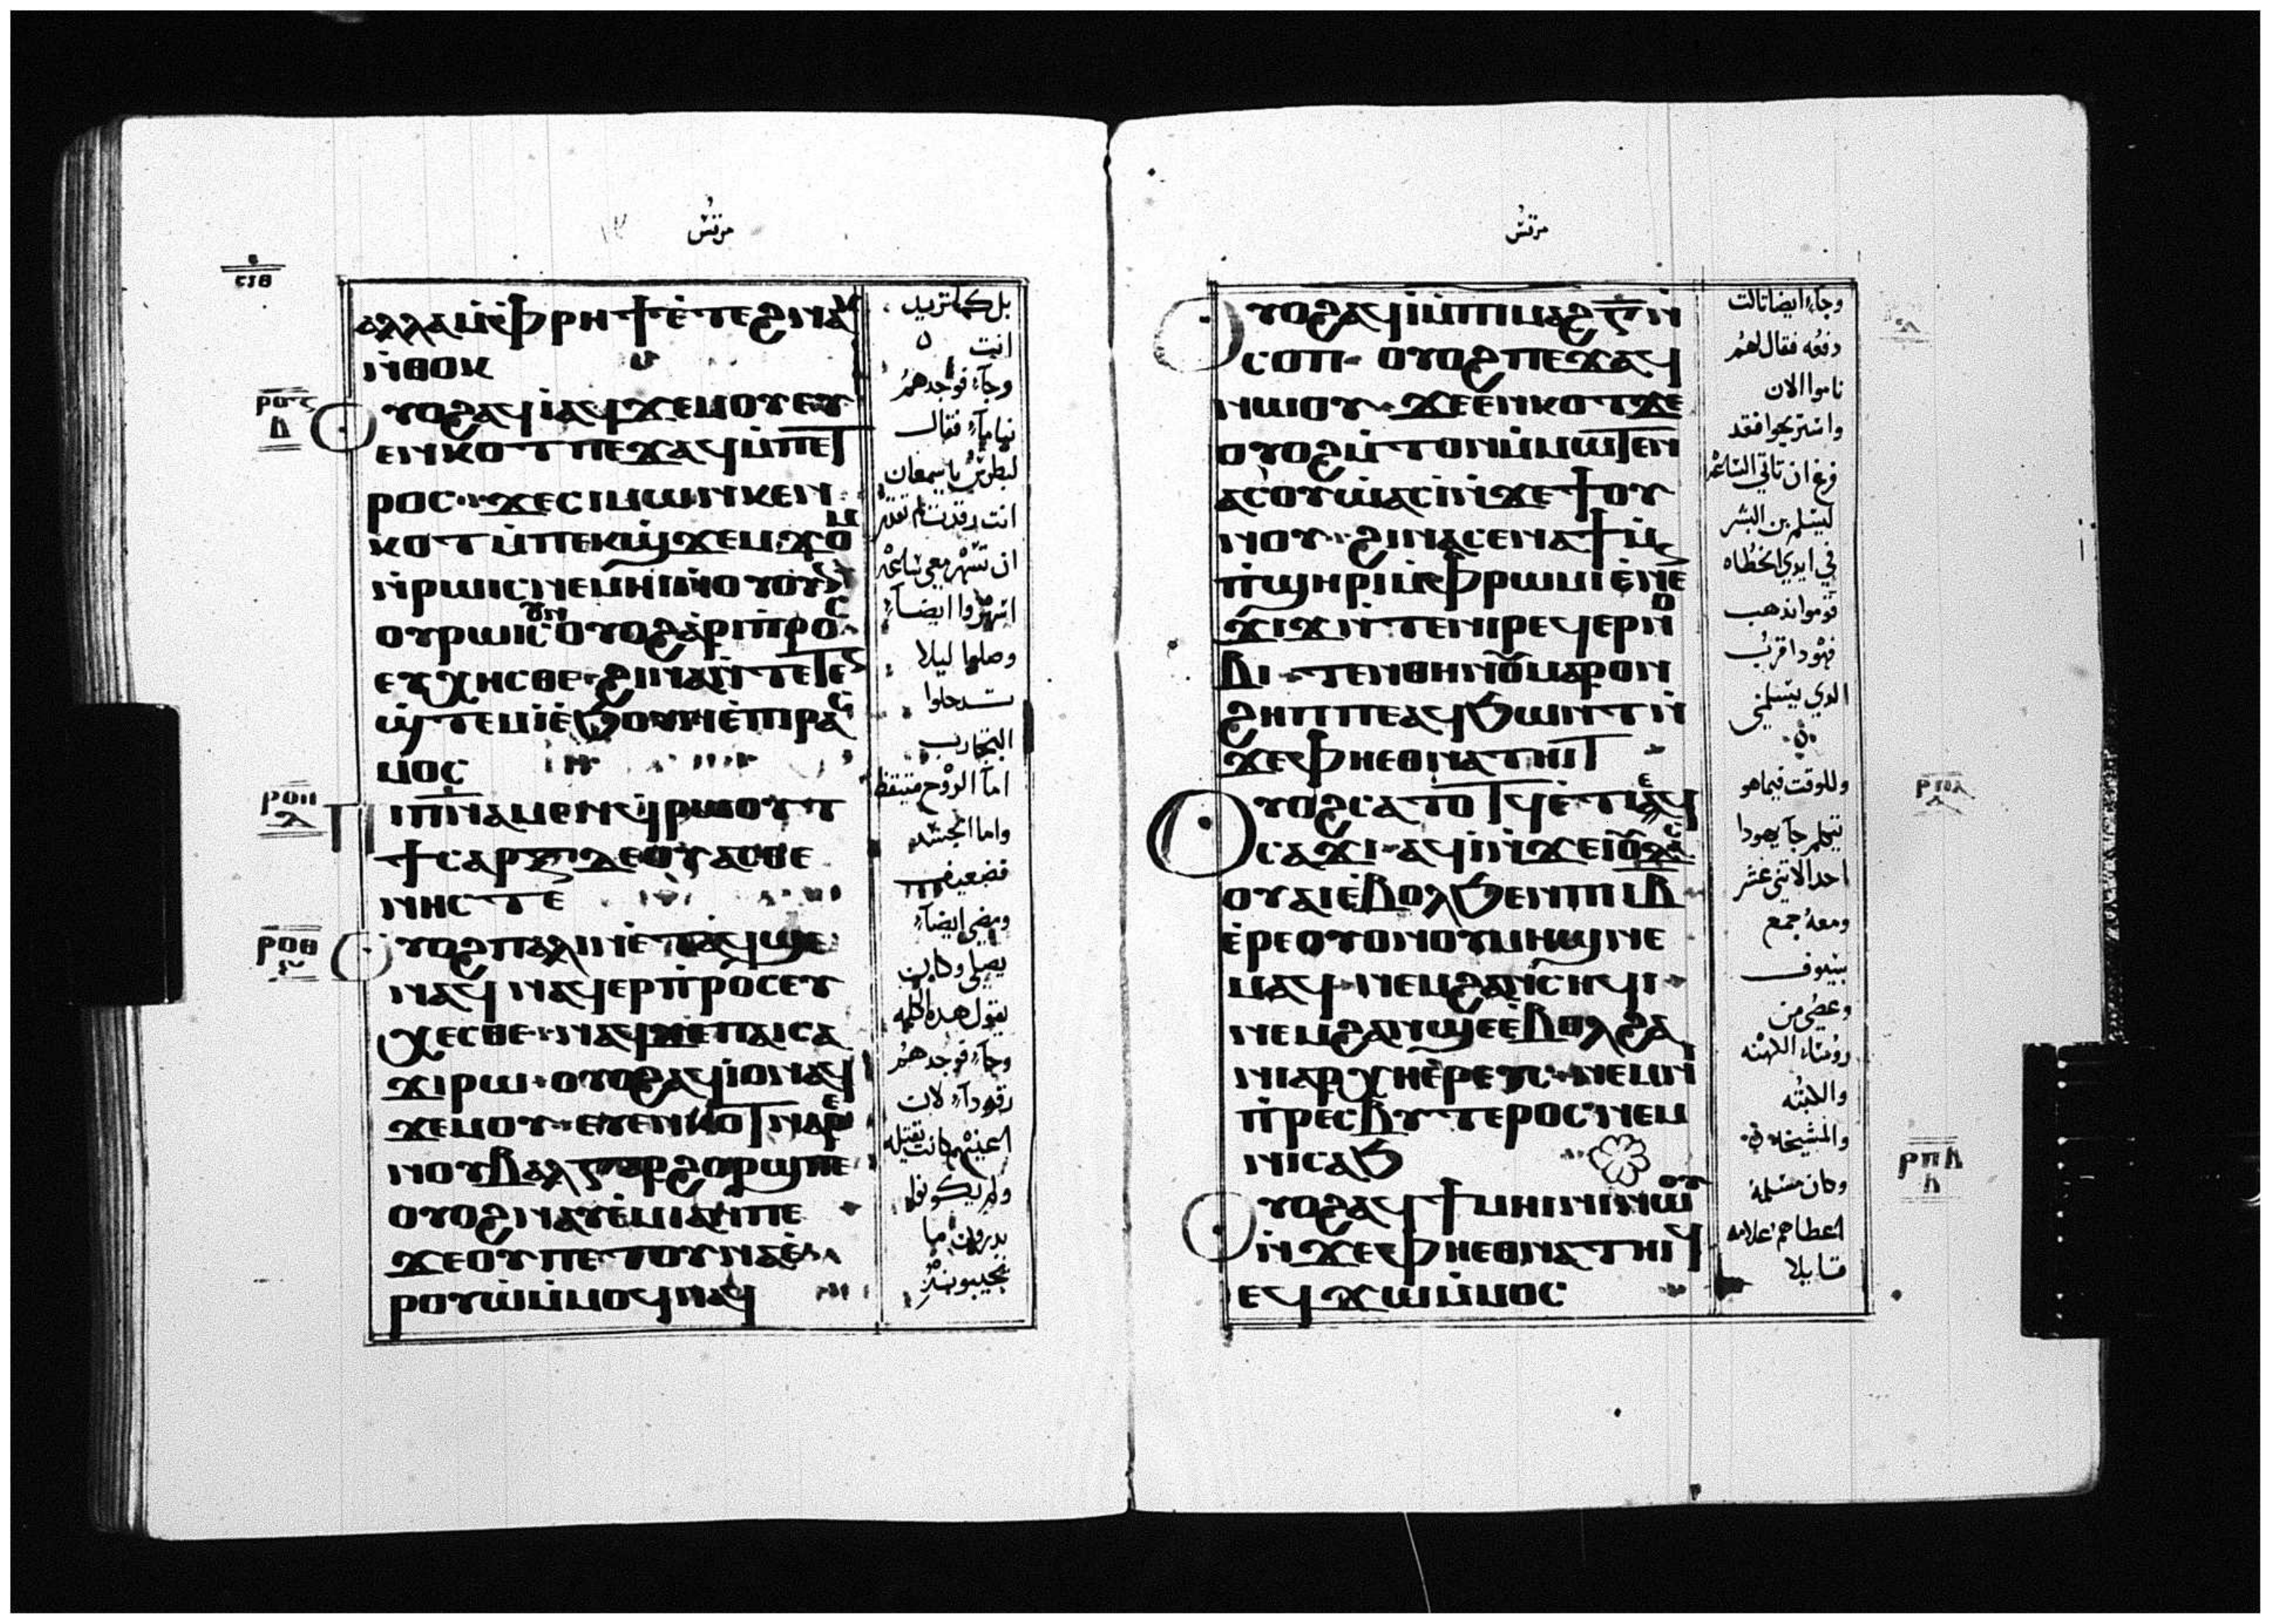 مرقس
ⲁⲗⲗⲁⲙ̀ⲫⲣⲏϯⲉ̀ⲧⲉϩⲛⲁⲕ
ⲛ̀ⲑⲟⲕ
ⲟⲩⲟϩⲁϥⲓ̀ⲁϥϫⲉⲙⲟⲩⲉⲩ
ⲉⲛⲕⲟⲧⲡⲉϫⲁϥⲙ̀ⲡⲉⲧ
ⲣⲟⲥ ϫⲉⲥⲓⲙⲱⲛⲕⲉⲛ
ⲕⲟⲧⲙ̀ⲡⲉⲕϣϫⲉⲙϫⲟⲙ
ⲛ̀ⲣⲱⲓⲥⲛⲉⲙⲏⲓⲛ̀ⲟⲩⲟⲩ
ⲟⲩⲣⲱⲓⲥⲟⲩⲛ ⲟⲩⲟϩⲁ̀ⲣⲓⲡ̀ⲣⲟⲥ
ⲉⲩⲭⲏⲥⲑⲉ ϩⲓⲛⲁⲛ̀ⲧⲉⲧⲉⲛ
ϣ̀ⲧⲉⲙⲓ̀ⲉ̀ϧⲟⲩⲛⲉ̀ⲡⲓⲣⲁⲥ
ⲙⲟⲥ
ⲡⲓⲡⲛⲁⲙⲉⲛϥⲣⲱⲟⲩⲧ
ϯⲥⲁⲣⲝ ⲇⲉⲟⲩⲁⲥⲑⲉ
ⲛⲏⲥⲧⲉ
ⲟⲩⲟϩⲡⲁⲗⲓⲛⲉ̀ⲧⲁϥϣⲉ
ⲛⲁϥ ⲛⲁϥⲉⲣⲡ̀ⲣⲟⲥⲉⲩ
ⲭⲉⲥⲑⲉ ⲛⲁϥϫⲉⲡⲁⲓⲥⲁ
ϫⲓⲣⲱ ⲟⲩⲟϩⲁϥⲓ̀ⲟⲛⲁϥ
ϫⲉⲙⲟⲩ ⲉⲩⲉⲛⲕⲟⲧⲛⲁⲣⲉ
ⲛⲟⲩⲃⲁⲗⲅⲁⲣϩⲟⲣϣⲡⲉ
ⲟⲩⲟϩⲛⲁⲩⲉ̀ⲙⲓⲁⲛⲡⲉ
ϫⲉⲟⲩⲡⲉⲧⲟⲩⲛⲁⲉ̀
ⲣⲟⲩⲱ̀ⲙ̀ⲙⲟϥⲛⲁϥ
بل كما تريد
انت
وجاء فوجدهم
نياماء فقال
لبطرس ياسمعان
انت رقدت لم تقدر
ان تسهر معي ساعه
اسهروا ايضاء
وصلوا ليلا
تدخلوا
التجارب
اما الروح متيقظ
واما الجسد
فضعيف
ومضى ايضاء
يصلي وكان
يقول هده الكلمه
وجاء فوجدهم
رقوداء لان
اعينهم كانت ثقيله
ولم يكونوا
يدرون ما
يجيبونه
ⲣⲟⲍ
ⲣⲟⲏ
ⲣⲟⲑ
مرقس
ⲟⲩⲟϩⲁϥⲓ̀ⲙ̀ⲡⲓⲙⲁϩⲅ̅ⲛ̀
ⲥⲟⲡ ⲟⲩⲟϩⲡⲉϫⲁϥ
ⲛⲱⲟⲩ ϫⲉⲉⲛⲕⲟⲧϫⲉ
ⲟⲩⲟϩⲙ̀ⲧⲟⲛⲙ̀ⲙⲱⲧⲉⲛ
ⲁⲥⲟⲩⲱ̀ⲁⲥⲓ̀ⲛ̀ϫⲉϯⲟⲩ
ⲛⲟⲩ ϩⲓⲛⲁⲥⲉⲛⲁϯⲙ̀
ⲡ̀ϣⲏⲣⲓⲙ̀ⲫⲣⲱⲙⲓⲉ̀ⲛⲉ
ϫⲓϫⲛ̀ⲧⲉⲛⲓⲣⲉϥⲉⲣⲛⲟ
ⲃⲓ ⲧⲉⲛⲑⲏⲛⲟⲩⲙⲁⲣⲟⲛ
ϩⲏⲡⲡⲉⲁϥϧⲱⲛⲧⲛ̀
ϫⲉⲫⲏⲉⲑⲛⲁⲧⲏⲓⲧ
ⲟⲩⲟϩⲥⲁⲧⲟⲧϥⲉ̀ⲧⲓⲉϥ
ⲥⲁϫⲓ ⲁϥⲓ̀ⲛ̀ϫⲉⲓⲟⲩⲇⲁⲥ
ⲟⲩⲁⲓⲉ̀ⲃⲟⲗϧⲉⲛⲡⲓⲓⲃ̅
ⲉ̀ⲣⲉⲟⲩⲟⲛⲟⲩⲙⲏϣⲛⲉ
ⲙⲁϥ ⲛⲉⲙϩⲁⲛⲥⲏϥⲓ
ⲛⲉⲙϩⲁⲛϣⲉⲉ̀ⲃⲟⲗϩⲁ
ⲛⲓⲁⲣⲭⲏⲉ̀ⲣⲉⲩⲥ ⲛⲉⲙⲛⲓ
ⲡ̀ⲣⲉⲥⲃⲩⲧⲉⲣⲟⲥⲛⲉⲙ
ⲛⲓⲥⲁϧ
ⲟⲩⲟϩⲁϥϯⲙⲏⲓⲛⲓⲛⲱⲟⲩ
ⲛ̀ϫⲉⲫⲏⲉⲑⲛⲁⲧⲏⲓϥ
ⲉϥϫⲱⲙ̀ⲙⲟⲥ
وجاء ايضا تالت
دفعه فقال لهم
ناموا الان
واستريحوا فقد
فرغ ان تاتي الساعه
ليسلم بن البشر
في ايدي الخطاه
قوموا نذهب
فهودا قرب
الدي يسلمني
وللوقت فيما هو
يتكلم جا يهودا
احد الاتنى عشر
ومعه جمع
بسيوف
وعصي من
روسا الكهنه
والكتبه
والمشيخه
وكان مسلمه
اعطاهم علامه
قايلا
ⲣⲡⲁ
ⲣⲡⲃ